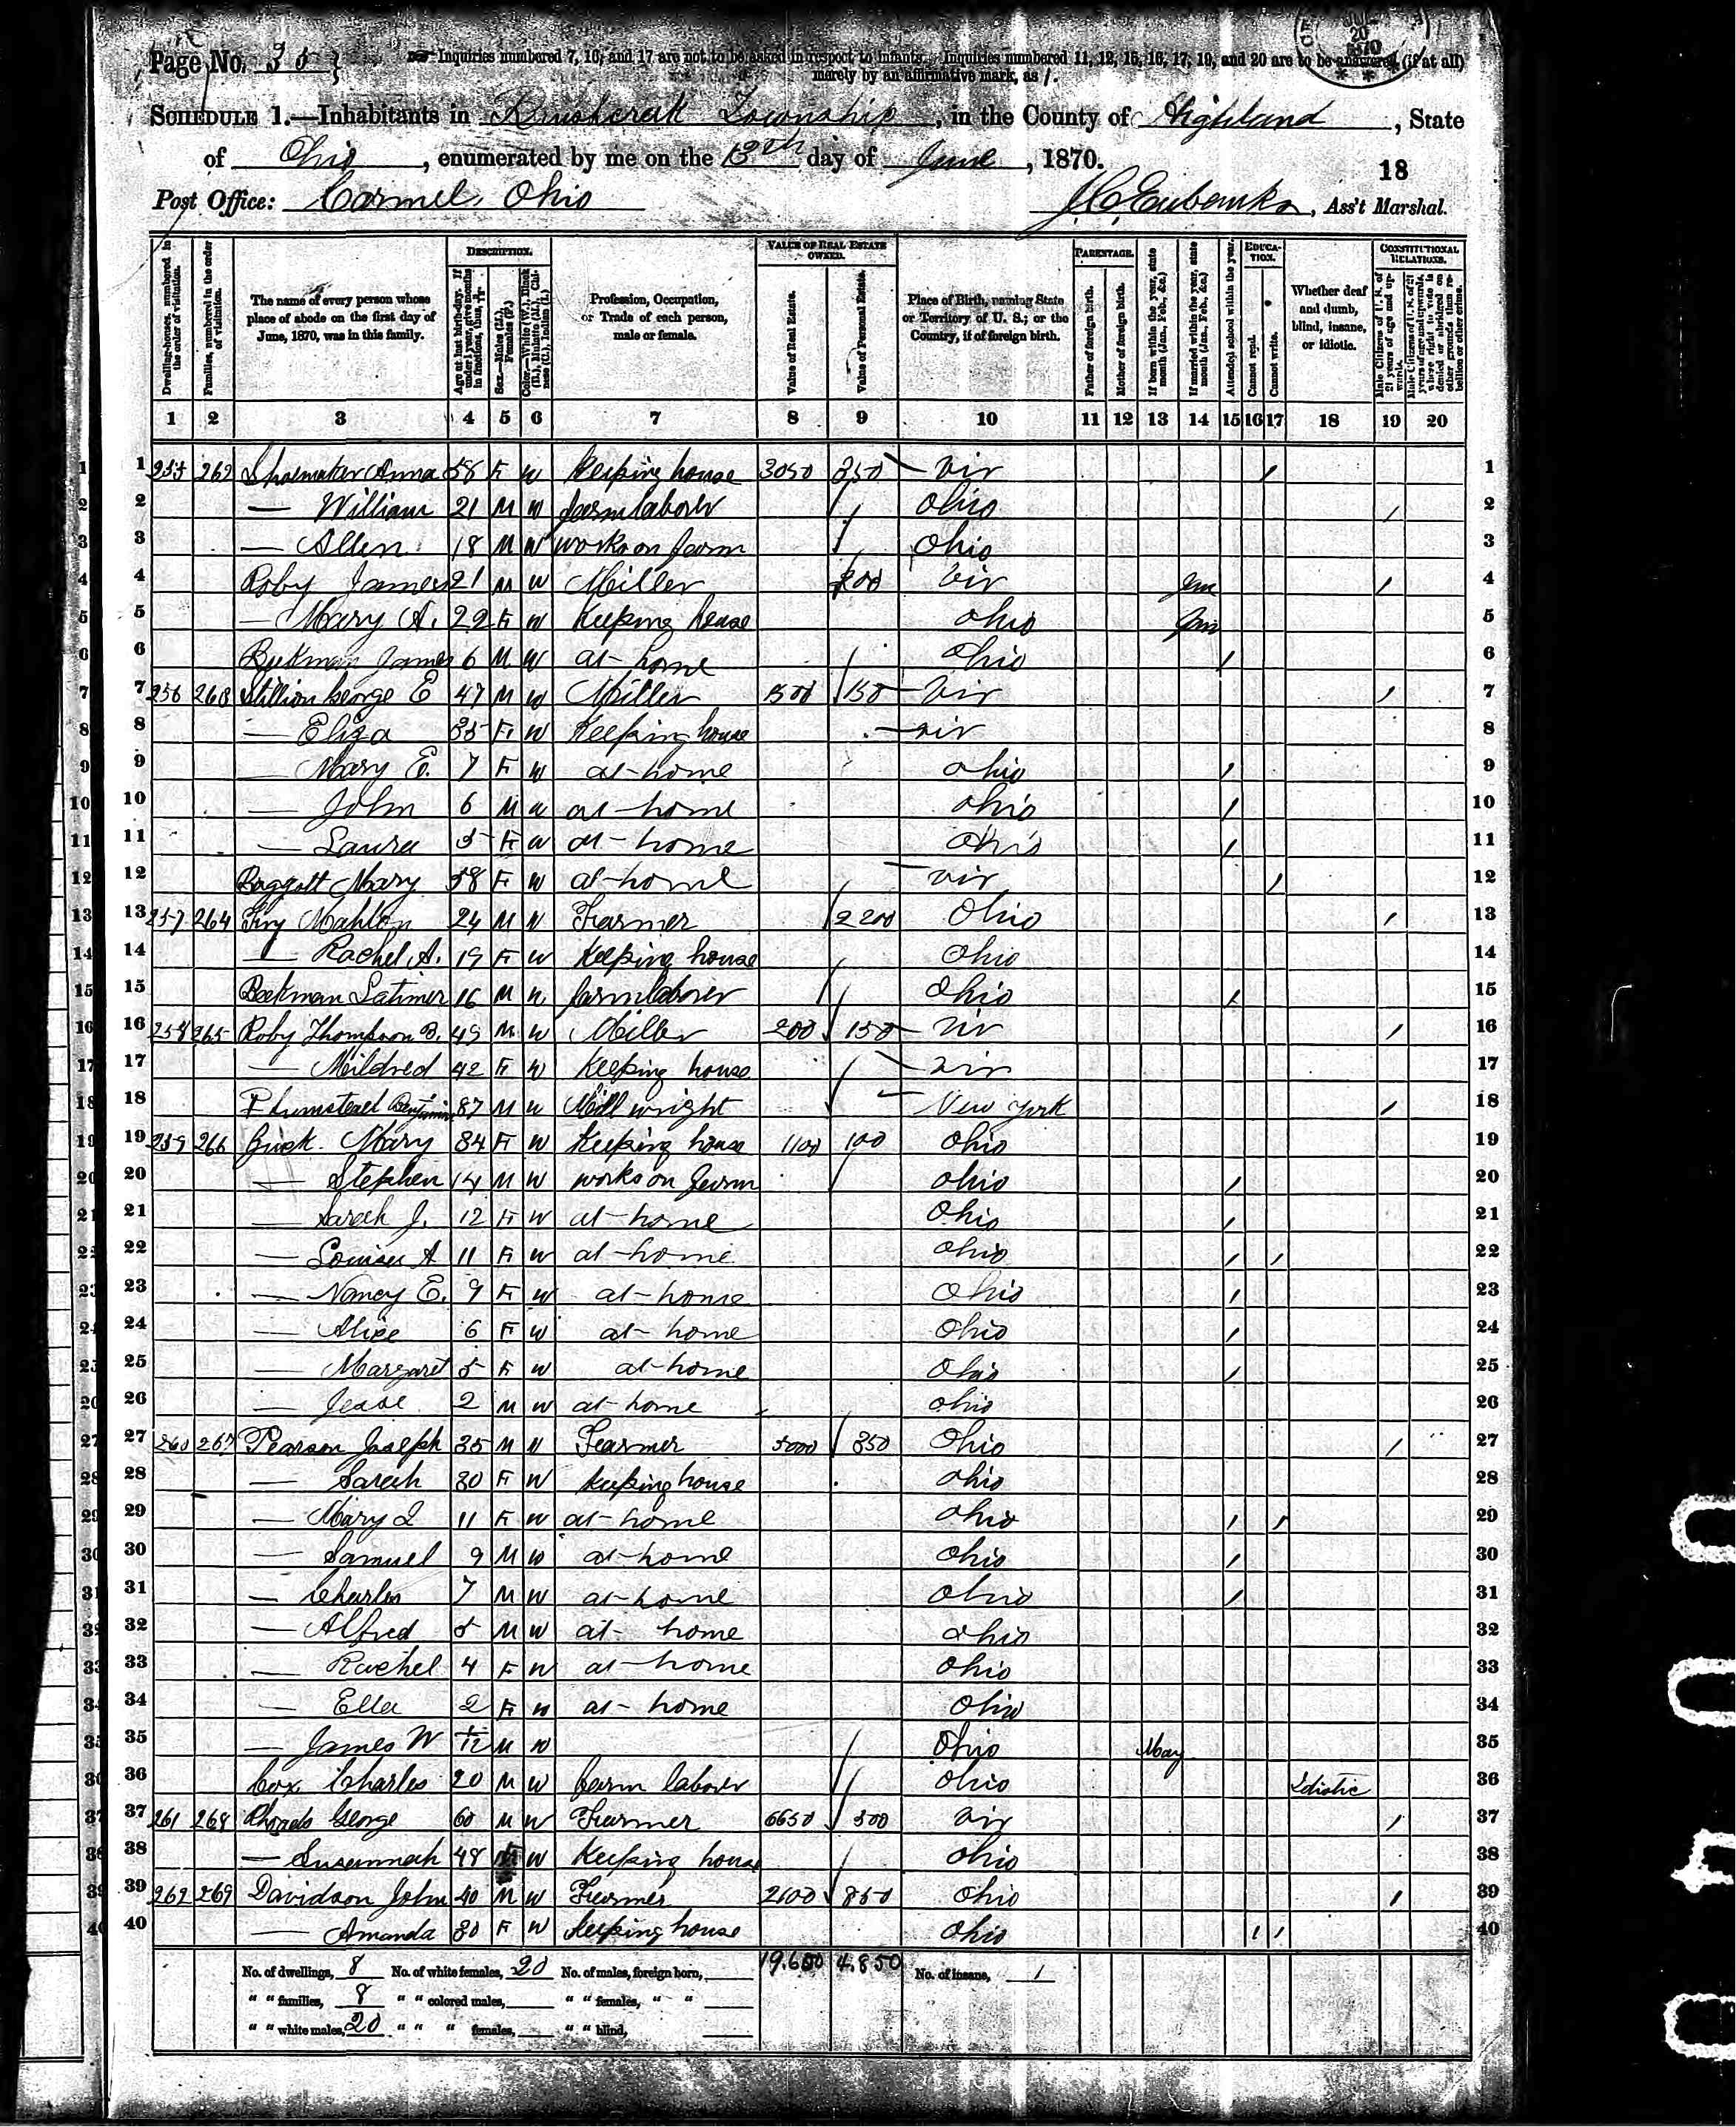 Page No. 35
Inquiries numbered 7, 16, and 17 are not to be asked in respect to infants. Inquiries numbered 11, 12, 15, 16, 17, 19, and 20 are to be answered (if at all)
merely by an affirmative mark, as /.
SCHEDULE 1.—Inhabitants in Township, in the County of Highland, State
of Ohio, enumerated by me on the 13th day of June, 1870.
18
Post Office: Carmel, Ohio J C Eubanks, Ass't Marshal.
DESCRIPTION. VALUE OF REAL ESTATE OWNED. PARENTAGE. EDUCATION. CONSTITUTIONAL RELATIONS.
Dwelling-houses, numbered in the order of visitation.
Families, numbered in the order of visitation.
The name of every person whose place of abode on the first day of June, 1870, was in this family.
Age at last birth-day. If under 1 year, give months in fractions, thus,
Sex.—Males (M.), Females (F.)
Color.—White (W.), Black (B.), Mulatto (M.), Chinese (C.), Indian (I.)
Profession, Occupation, or Trade of each person, male or female.
Value of Real Estate.
Value of Personal Estate.
Place of Birth, naming State or Territory of U. S.; or the Country, if of foreign birth.
Father of foreign birth.
Mother of foreign birth.
If born within the year, state month (Jan., Feb., &c.)
If married within the year, state month (Jan., Feb., &c.)
Attended school within the year.
Cannot read.
Cannot write.
Whether deaf and dumb, blind, insane, or idiotic.
Male Citizens of U. S. of 21 years of age and upwards.
Male Citizens of U. S. of 21 years of age and upwards, where right to vote is denied or abridged on other grounds than rebellion or other crime.
1 2 3 4 5 6 7 8 9 10 11 12 13 14 15 16 17 18 19 20
1 262 Shoemaker Anna 58 F W Keeping house 3050 350 Vir / 1
2 — William 21 M W farm laborer Ohio / 2
3 — Allen 18 M W works on farm Ohio 3
4 Roby James 21 M W Miller 200 Vir Jan / 4
5 — Mary A. 22 F W Keeping house Ohio Jan 5
6 Beekman James 6 M W at home Ohio / 6
7 256 263 Stillion George E 47 M W Miller 1500 150 Vir / 7
8 — Eliza 35 F W Keeping house Vir 8
9 — Mary E. 7 F W at home Ohio / 9
10 — John 6 M W at home Ohio / 10
11 — Laura 5 F W at home Ohio / 11
12 Baggott Mary 58 F W at home Vir / 12
13 257 264 Mahlon 24 M W Farmer 2200 Ohio / 13
14 — Rachel A. 19 F W Keeping house Ohio 14
15 Beekman Latimer 16 M W farm laborer Ohio / 15
16 258 265 Roby Thompson B. 49 M W Miller 200 150 Vir / 16
17 — Mildred 42 F W Keeping house Vir 17
18 Plumstead Benjamin 87 M W Mill wright New York / 18
19 259 266 Mary 34 F W Keeping house 1100 100 Ohio 19
20 — Stephen 14 M W works on farm Ohio / 20
21 — Sarah J. 12 F W at home Ohio / 21
22 — Louisa A 11 F W at home Ohio / / 22
23 — Nancy E. 9 F W at home Ohio / 23
24 — Alice 6 F W at home Ohio / 24
25 — Margaret 5 F W at home Ohio / 25
26 — Jesse 2 M W at home Ohio 26
27 260 267 Pearson Joseph 35 M W Farmer 5000 350 Ohio / 27
28 — Sarah 30 F W Keeping house Ohio 28
29 — Mary 11 F W at home Ohio / / 29
30 — Samuel 9 M W at home Ohio / 30
31 — Charles 7 M W at home Ohio / 31
32 — Alfred 5 M W at home Ohio 32
33 — Rachel 4 F W at home Ohio 33
34 — Ella 2 F W at home Ohio 34
35 — James W 1/12 M W Ohio May 35
36 Cox Charles 20 M W farm laborer Ohio Idiotic 36
37 261 268 Rhoads George 60 M W Farmer 6650 500 Vir / 37
38 — Susannah 48 F W Keeping house Ohio 38
39 262 269 Davidson John 40 M W Farmer 2100 850 Ohio / 39
40 — Amanda 30 F W Keeping house Ohio / / 40
No. of dwellings, 8 No. of white females, 20 No. of males, foreign born, 19.600 4.850 No. of insane, 1
" " families, 8 " " colored males, " " females, " "
" " white males, 20 " " " females, " " blind,